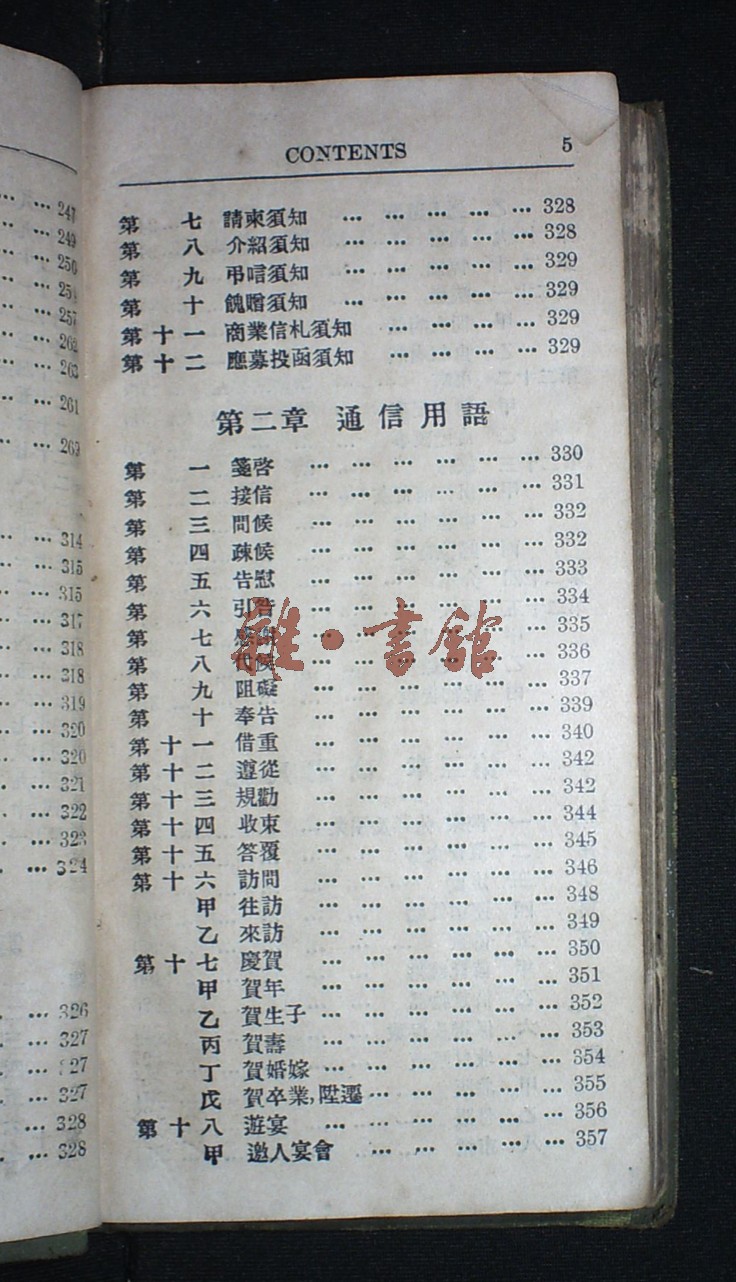 … … 247
… … 249
… … 250
… … 254
… … 257
… … 262
… … 263
… … 261
… … 269
… … 314
… … 315
… … 315
… … 317
… … 318
… … 318
… … 319
… … 320
… … 320
… … 321
… … 322
… … 323
… … 324
… … 326
… … 327
… … 327
… … 327
… … 328
… … 328
CONTENTS 5
第七 請柬須知 … … … … … 328
第八 介紹須知 … … … … … 328
第九 弔唁須知 … … … … … 329
第十 餽贈須知 … … … … … 329
第十一 商業信札須知 … … … … 329
第十二 應募投函須知 … … … … 329
第二章 通信用語
第一 箋啓 … … … … … … 330
第二 接信 … … … … … … 331
第三 問候 … … … … … … 332
第四 疎候 … … … … … … 332
第五 告慰 … … … … … … 333
第六 引 … … … … … … 334
第七 … … … … … … 335
第八 代候 … … … … … … 336
第九 阻礙 … … … … … … 337
第十 奉告 … … … … … … 339
第十一 借重 … … … … … … 340
第十二 遵從 … … … … … … 342
第十三 規勸 … … … … … … 342
第十四 收束 … … … … … … 344
第十五 答覆 … … … … … … 345
第十六 訪問 … … … … … … 346
甲 往訪 … … … … … … 348
乙 來訪 … … … … … … 349
第十七 慶賀 … … … … … … 350
甲 賀年 … … … … … … 351
乙 賀生子 … … … … … … 352
丙 賀壽 … … … … … … 353
丁 賀婚嫁 … … … … … … 354
戊 賀卒業,陞遷 … … … … … 355
第十八 遊宴 … … … … … … 356
甲 邀人宴會 … … … … … 357
雜·書館